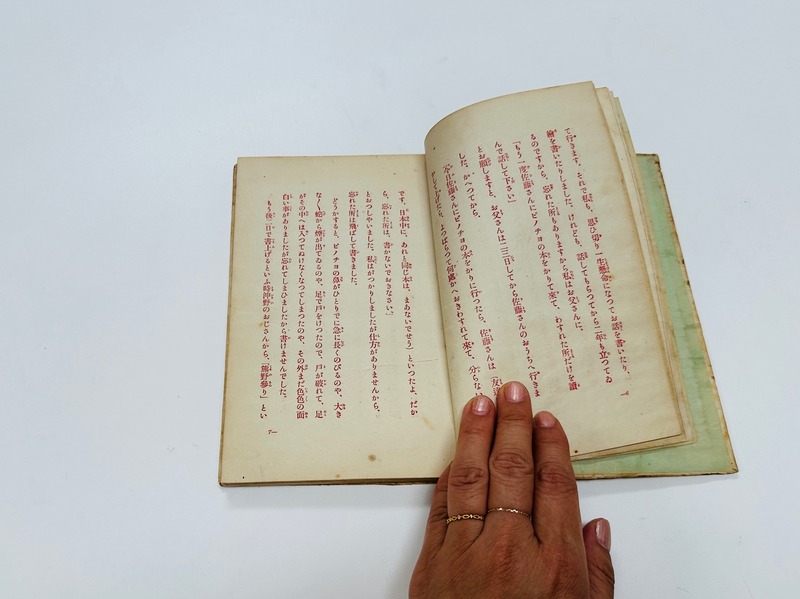 て行きます。それで私も、思ひ切り一生懸命になつてお話を書いたり、
繪を書いたりしました。けれども、話してもらつてから二年も立つてゐ
るのですから、忘れた所もありますから私はお父さんに、
「もう一度佐藤さんにピノチヨの本をかりて來て、わすれた所だけを讀
んで話して下さい」
とお願しますと、お父さんは二三日してから佐藤さんのおうちへ行きま
した。かへつてから、
「今日佐藤さんにピノチヨの本をかりに行つたら、佐藤さんは『友達
かしてあげたら、よつぱらつて何處かへおきわすれて來て、分らない
六
です。日本中に、あれと同じ本は、まあないでせう』といつたよ。だか
ら、忘れた所は、書かないでおきなさい。」
とおつしやいました。私はがつかりしましたが仕方がありませんから、
忘れた所は飛ばして書きました。
どうかすると、ピノチヨの鼻がひとりでに急に長くのびるのや、大き
な蛇から煙が出てゐるのや、足で戸をけつたので、戸が破れて、足
がその中へは入つてぬけなくなつてしまつたのや、その外まだ色色の面
白い事がありましたが忘れてしまひましたから書けませんでした。
もう後一日で書上げるといふ時沖野のおじさんから、「熊野參り」とい
七